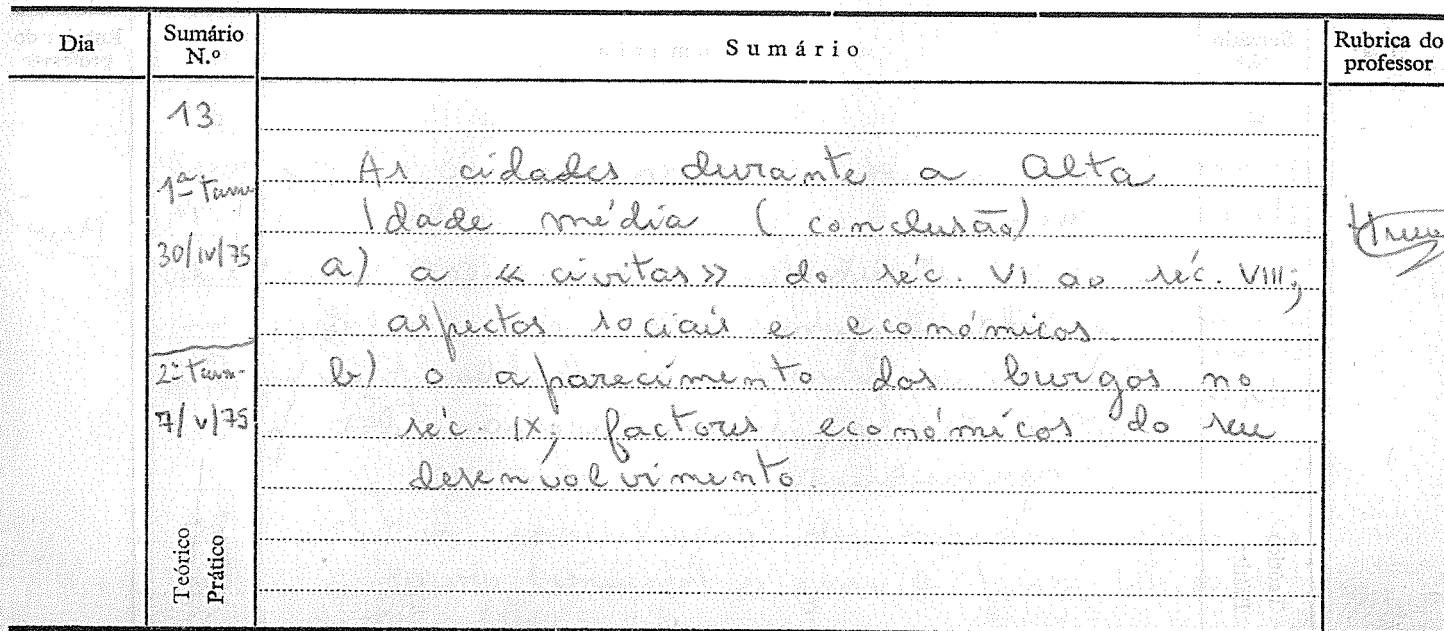 Dia
Sumário N.º
Sumário
Rubrica do professor
13
1ª turm
30/IV/75
2ª turm-
7/V/75
Teórico
Prático
As cidades durante a Alta
Idade média (conclusão)
a) a «civitas» do séc. VI ao séc. VIII;
aspectos sociais e económicos.
b) o aparecimento dos burgos no
séc. IX; factores económicos do seu
desenvolvimento